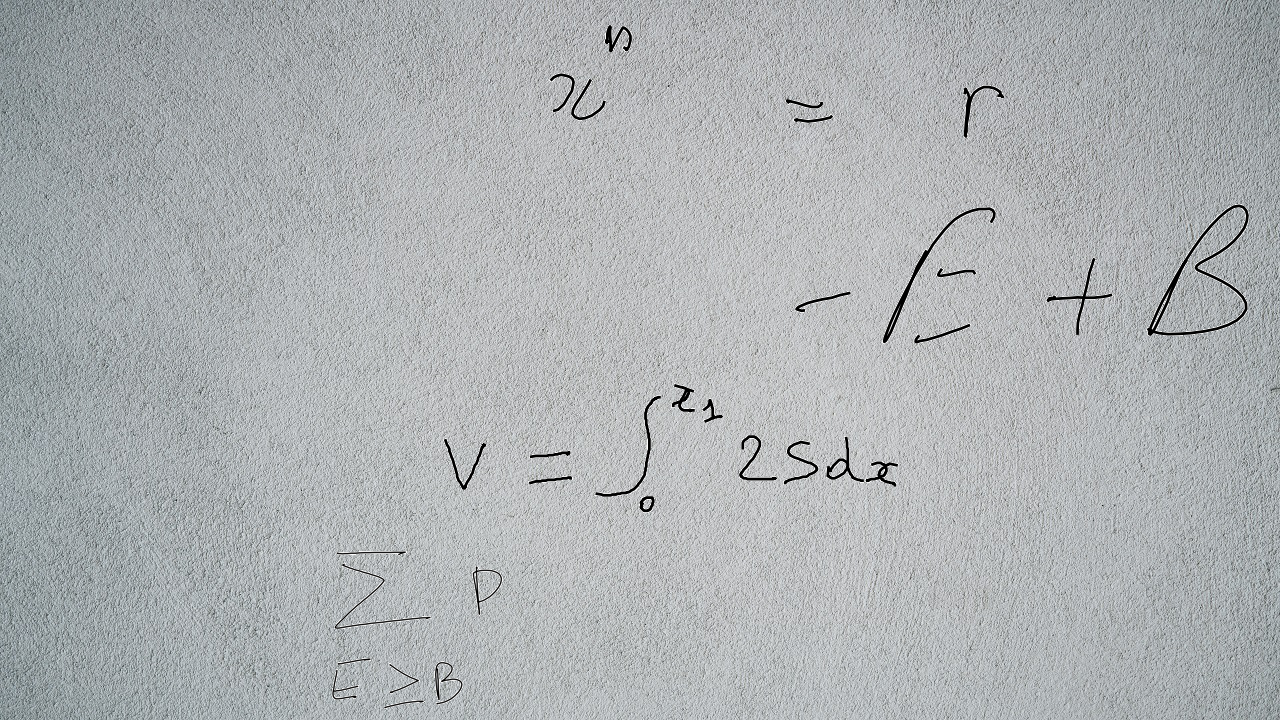 xⁿ = r
- E + B
V = ∫₀^{x₁} 2Sdx
∑_{E ≥ B} P